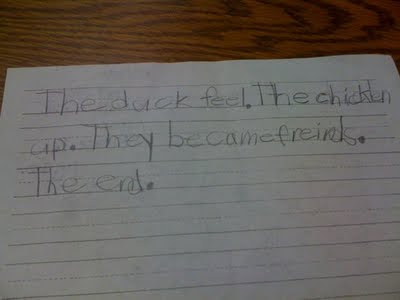 The duck feel. The chicken
up. They became freinds.
The end.